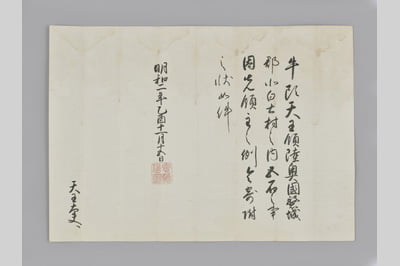 牛頭天王領陸奥國磐城
郡北白土村之内五石之事
因先領主之例令寄附
之状如件
明和二年乙酉十一月十五日
天王太夫